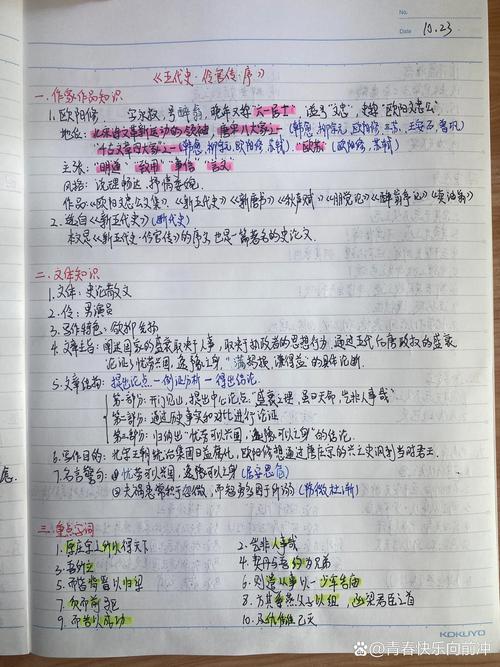 No.
Date 10.23
《五代史·伶官传·序》
一.作家作品知识
1.欧阳修. 字永叔,号醉翁,晚年又号"六一居士" 谥号"文忠",史称"欧阳文忠公"
地位:北宋诗文革新运动的领袖,唐宋八大家之一(韩愈,柳宗元,欧阳修,三苏,王安石,曾巩)
"千古文章四大家之一(韩愈,柳宗元,欧阳修,苏轼). (欧阳修,苏轼)
主张:"明道" "致用" "事信" "言文"
风格:说理畅达,抒情委婉.
作品:《欧阳文忠公文集》.《新五代史》《新唐书》《秋声赋》《朋党论》《醉翁亭记》《卖油翁》
2.选自《新五代史》(断代史)
本文是《新五代史·伶官传》的序文,也是一篇著名的史论文.
二.文体知识
1.文体:史论散文
2.伶:男演员
3.写作特色:欲抑先扬
4.文章主旨:阐述国家的盛衰取决于人事,取决于执政者的思想行为,通过五代后唐政权的盛衰
论证了忧劳兴国,逸豫亡身,"满招损,谦得益"的具体论断.
5.文章结构:提出论点—例证分析—得出结论.
第一部分:开门见山,提出中心论点"盛衰之理,虽曰天命,岂非人事哉"
第二部分:通过历史事实和对比进行论证
第三部分:归纳出"忧劳可以兴国,逸豫可以亡身"的结论.
6.写作目的:北宋王朝统治集团日益腐化,欧阳修想通过唐庄宗的兴亡史讽刺当时君王.
7.名言警句:①忧劳可以兴国,逸豫可以亡身(居安思危)
②夫祸患常积于忽微,而智勇多困于所溺(防微杜渐)
三.重点字词
1.原庄宗之所以得天下
2.岂非人事哉
3.吾所立
4.契丹与吾约为兄弟
5.而皆背晋以归梁
6.则遣从事以一少牢告庙
7.负而前驱
8.方其系燕父子以组,函梁君臣之首
9.而告以成功
10.及仇雠已灭
KOKUYO
@青春快乐向前冲